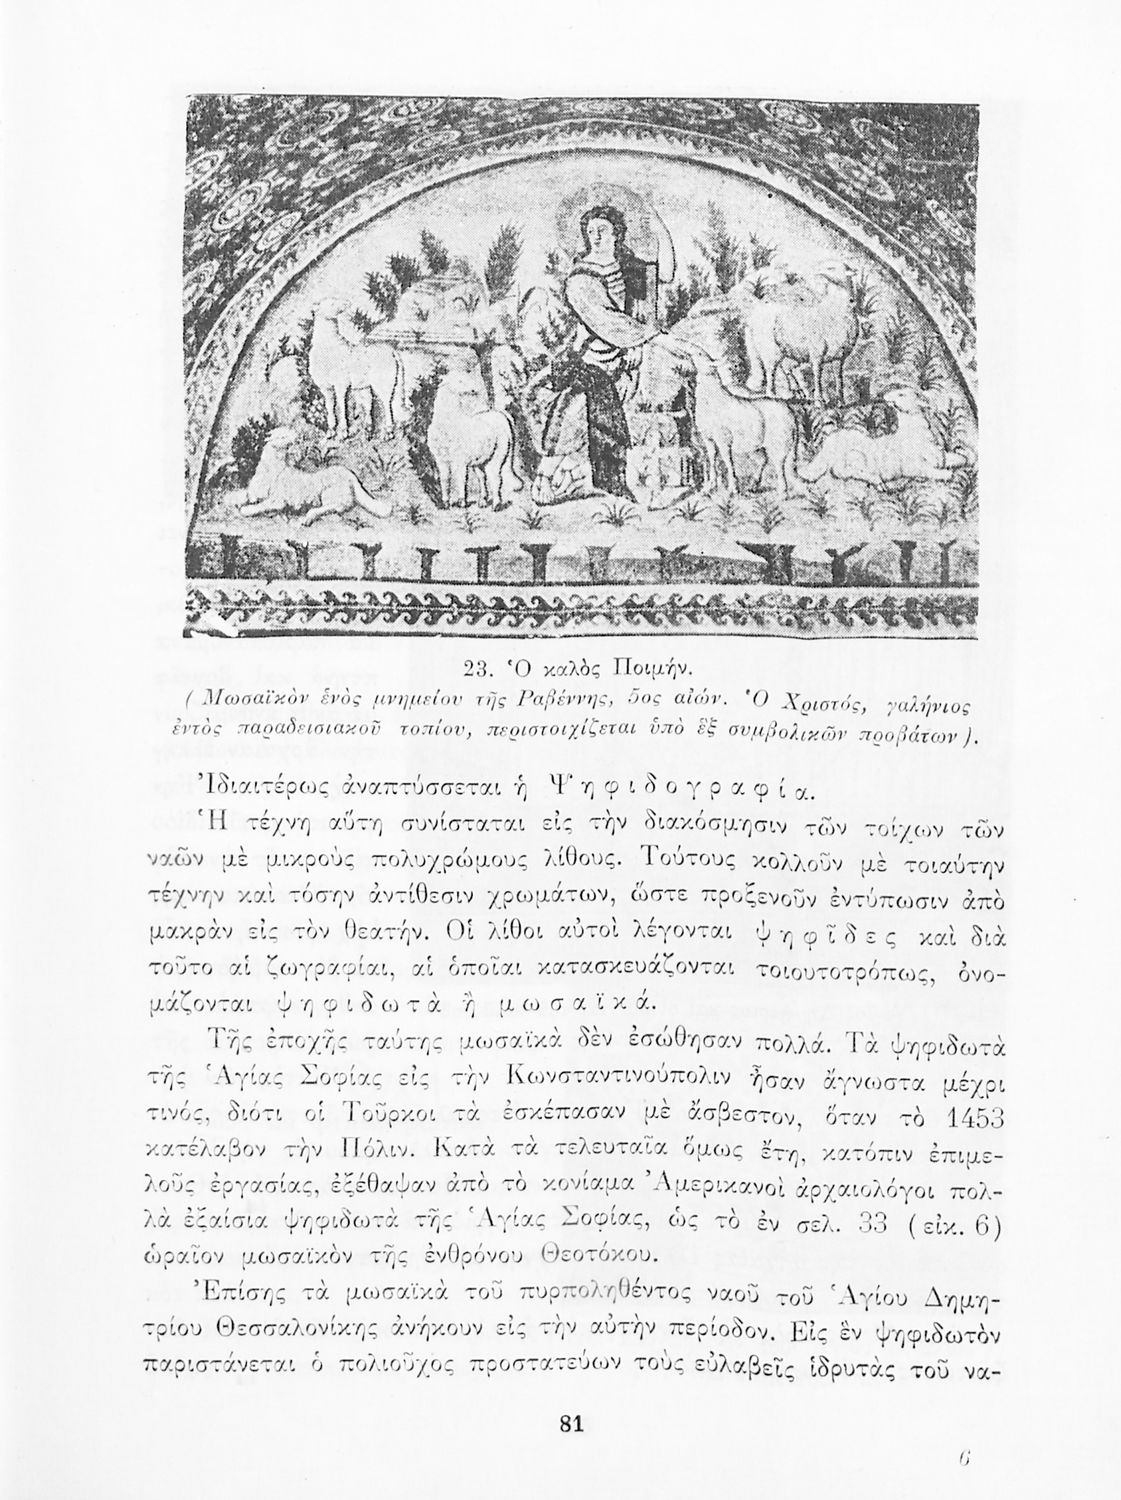 23. Ὁ καλὸς Ποιμήν.
( Μωσαϊκὸν ἑνὸς μνημείου τῆς Ραβέννης, 5ος αἰών. Ὁ Χριστός, γαλήνιος
ἐντὸς παραδεισιακοῦ τοπίου, περιστοιχίζεται ὑπὸ ἓξ συμβολικῶν προβάτων ).
Ἰδιαιτέρως ἀναπτύσσεται ἡ Ψηφιδογραφία.
Ἡ τέχνη αὕτη συνίσταται εἰς τὴν διακόσμησιν τῶν τοίχων τῶν
ναῶν μὲ μικροὺς πολυχρώμους λίθους. Τούτους κολλοῦν μὲ τοιαύτην
τέχνην καὶ τόσην ἀντίθεσιν χρωμάτων, ὥστε προξενοῦν ἐντύπωσιν ἀπὸ
μακρὰν εἰς τὸν θεατήν. Οἱ λίθοι αὐτοὶ λέγονται ψηφῖδες καὶ διὰ
τοῦτο αἱ ζωγραφίαι, αἱ ὁποῖαι κατασκευάζονται τοιουτοτρόπως, ὀνο-
μάζονται ψηφιδωτὰ ἢ μωσαϊκά.
Τῆς ἐποχῆς ταύτης μωσαϊκὰ δὲν ἐσώθησαν πολλά. Τὰ ψηφιδωτὰ
τῆς Ἁγίας Σοφίας εἰς τὴν Κωνσταντινούπολιν ἦσαν ἄγνωστα μέχρι
τινός, διότι οἱ Τοῦρκοι τὰ ἐσκέπασαν μὲ ἄσβεστον, ὅταν τὸ 1453
κατέλαβον τὴν Πόλιν. Κατὰ τὰ τελευταῖα ὅμως ἔτη, κατόπιν ἐπιμε-
λοῦς ἐργασίας, ἐξέθαψαν ἀπὸ τὸ κονίαμα Ἀμερικανοὶ ἀρχαιολόγοι πολ-
λὰ ἐξαίσια ψηφιδωτὰ τῆς Ἁγίας Σοφίας, ὡς τὸ ἐν σελ. 33 (εἰκ. 6)
ὡραῖον μωσαϊκὸν τῆς ἐνθρόνου Θεοτόκου.
Ἐπίσης τὰ μωσαϊκὰ τοῦ πυρποληθέντος ναοῦ τοῦ Ἁγίου Δημη-
τρίου Θεσσαλονίκης ἀνήκουν εἰς τὴν αὐτὴν περίοδον. Εἰς ἓν ψηφιδωτὸν
παριστάνεται ὁ πολιοῦχος προστατεύων τοὺς εὐλαβεῖς ἱδρυτὰς τοῦ να-
81
6